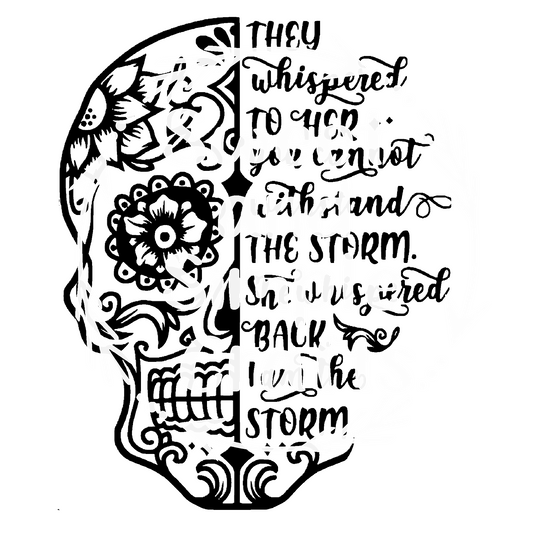 THEY
whispered
TO HER
you cannot
withstand
THE STORM.
She whispered
BACK
I am the
STORM